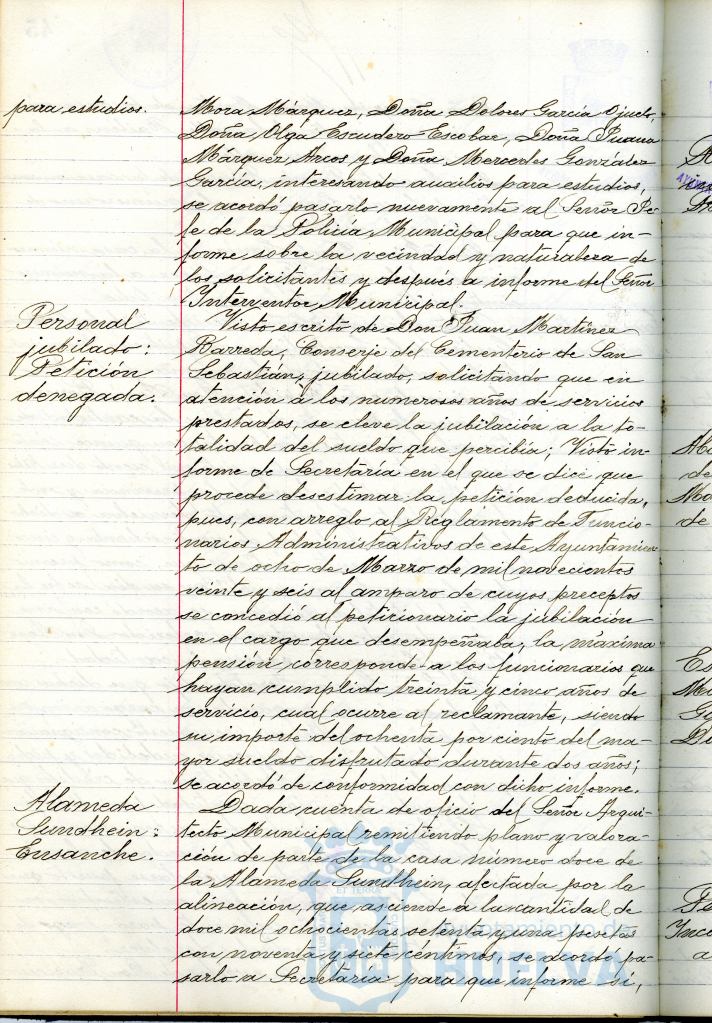 para estudios.
Mora Márquez, Doña Dolores García Ojuelo,
Doña Olga Escudero Escobar, Doña Juana
Márquez Arcos y Doña Mercedes González
García, interesando auxilios para estudios,
se acordó pasarlo nuevamente al Señor Je-
fe de la Policía Municipal para que in-
forme sobre la vecindad y naturaleza de
los solicitantes y después a informe del Señor
Interventor Municipal.
Personal
jubilado:
Petición
denegada.
Visto escrito de Don Juan Martínez
Barreda, Conserje del Cementerio de San
Sebastián, jubilado, solicitando que en
atención á los numerosos años de servicios
prestados, se eleve la jubilación a la to-
talidad del sueldo que percibía; Visto in-
forme de Secretaría en el que se dice que
procede desestimar la petición deducida,
pues, con arreglo al Reglamento de Funcio-
narios Administrativos de este Ayuntamien-
to de ocho de Marzo de mil novecientos
veinte y seis al amparo de cuyos preceptos
se concedió al peticionario la jubilación
en el cargo que desempeñaba, la máxima
pensión corresponde a los funcionarios que
hayan cumplido treinta y cinco años de
servicio, cual ocurre al reclamante, siendo
su importe del ochenta por ciento del ma-
yor sueldo disfrutado durante dos años;
se acordó de conformidad con dicho informe.
Alameda
Sundhein:
Ensanche.
Dada cuenta de oficio del Señor Arqui-
tecto Municipal remitiendo plano y valora-
ción de parte de la casa número doce de
la Alameda Sundhein, afectada por la
alineación, que asciende a la cantidad de
doce mil ochocientas setenta y una pesetas
con noventa y siete céntimos, se acordó pa-
sarlo a Secretaría para que informe si,
Ayuntamiento de
HUELVA